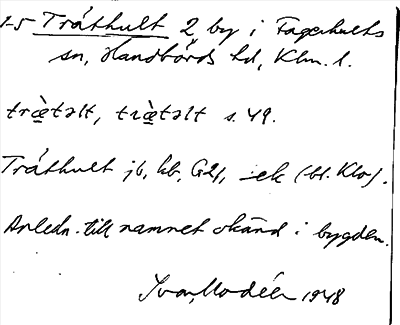 1-5 Tråthult 2, by i Fagerhults
sn, Handbörds hd, Klm. l.
træ̀təlt, træ̀təlt s. 49.
Tråthult jb, kb, G21, –ek (bl. Klov).
Anledn. till namnet okänd i bygden.
Ivar Modéer 1948